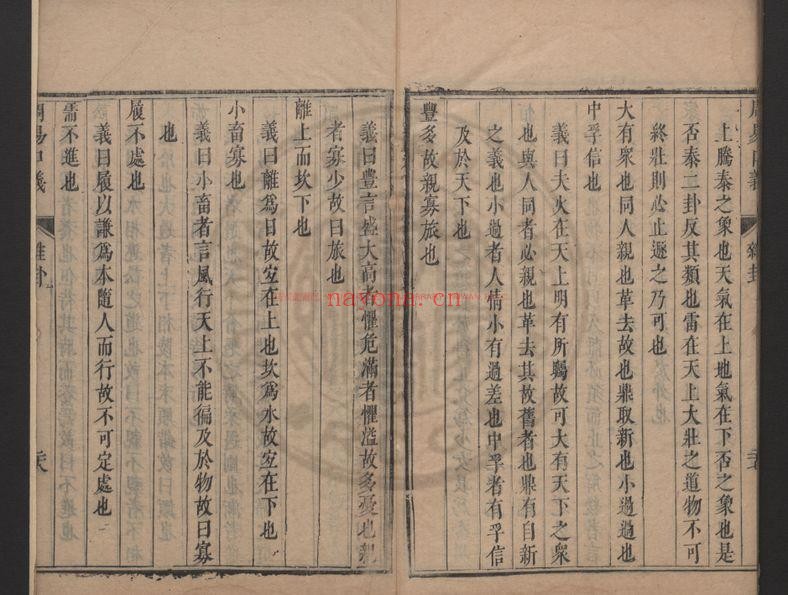 周易口義
雜卦
上騰泰之象也天氣在上地氣在下否之象也是
否泰二卦反其類也雷在天上大壯之道物不可
終壯則必止遯之乃可也
大有衆也同人親也革去故也鼎取新也小過過也
中孚信也
義曰夫火在天上明有所驕故可大有天下之衆
也與人同者必親也革去其故舊者也鼎有自新
之義也小過者人情小有過差也中孚者有孚信
及於天下也
豐多故親寡旅也
義曰豐言盛大前者懼危滿者懼溢故多憂也親
者寡少故曰旅也
離上而坎下也
義曰離爲日故宜在上也坎爲水故宜在下也
小畜寡也
義曰小畜者言風行天上不能徧及於物故曰寡
也
履不處也
義曰履以謙爲本隨人而行故不可定處也
需不進也
周易口義
雜卦
navona.cn